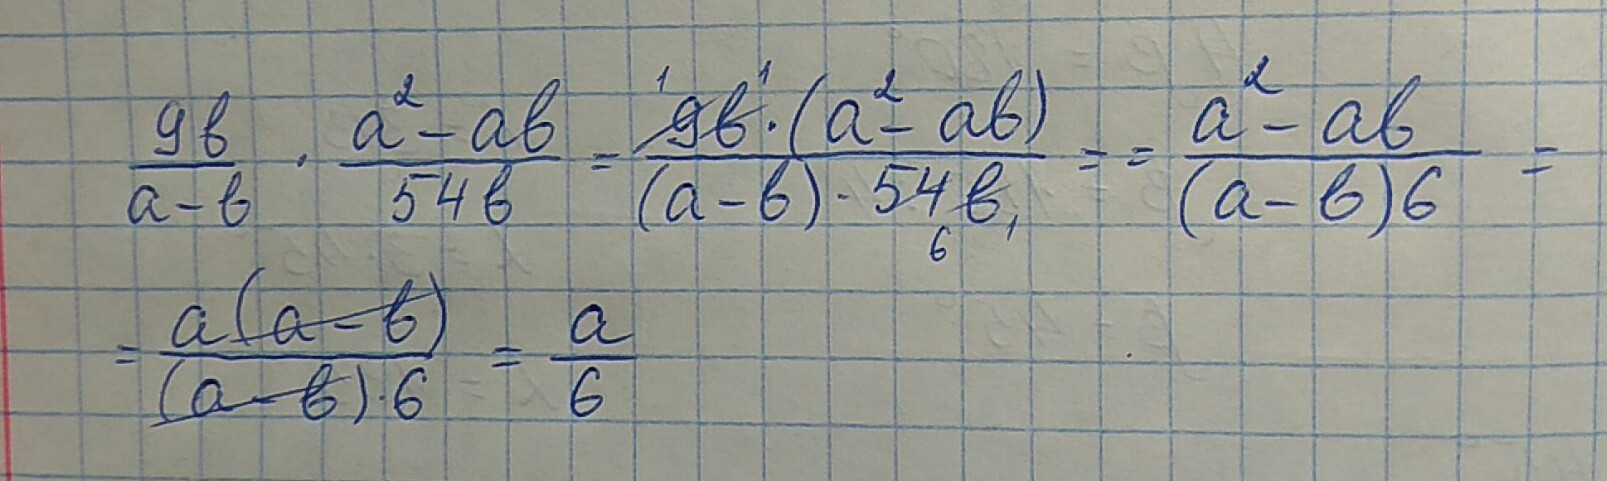 9b/(a-b) · (a²-ab)/(54b) = (9b·(a²-ab))/((a-b)·54b) = = (a²-ab)/((a-b)6) =
= (a(a-b))/((a-b)·6) = a/6